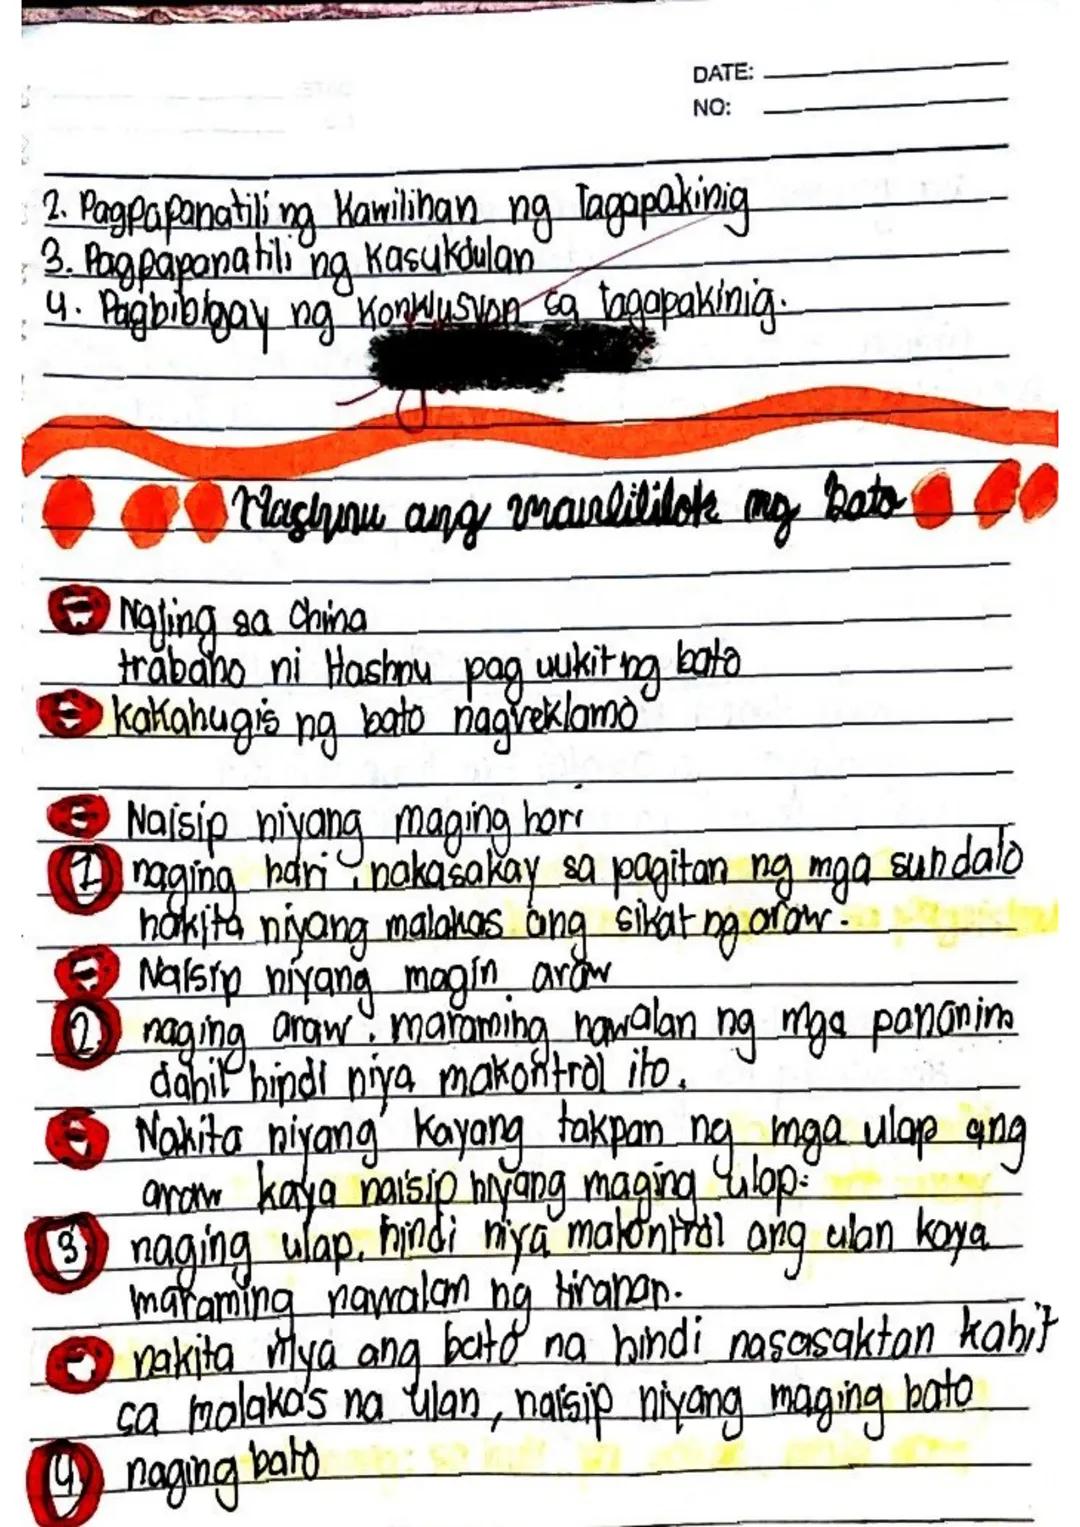 DATE:
NO:
2. Pagpapanatili ng Kawilihan ng Tagapakinig
3. Pagpapanatili ng Kasukdulan
4. Pagbibigay ng Konklusyon sa tagapakinig.
Hashnu ang manlililok ng Bato
Naging sa China
trabaho ni Hashnu pag uukit ng bato
kakahugis ng bato nagreklamo
Naisip niyang maging hari
1 naging hari, nakasakay sa pagitan ng mga sundalo
nakita niyang malakas ang sikat ng araw.
Naisip niyang magin araw
2 naging araw. maraming nawalan ng mga pananim
dahil hindi niya makontrol ito.
Nakita niyang kayang takpan ng mga ulap ang
araw kaya naisip niyang maging ulap.
3 naging ulap, hindi niya makontrol ang ulan kaya
maraming nawalan ng tirahan.
nakita niya ang bato na hindi nasasaktan kahit
sa malakas na ulan, naisip niyang maging bato
4 naging bato